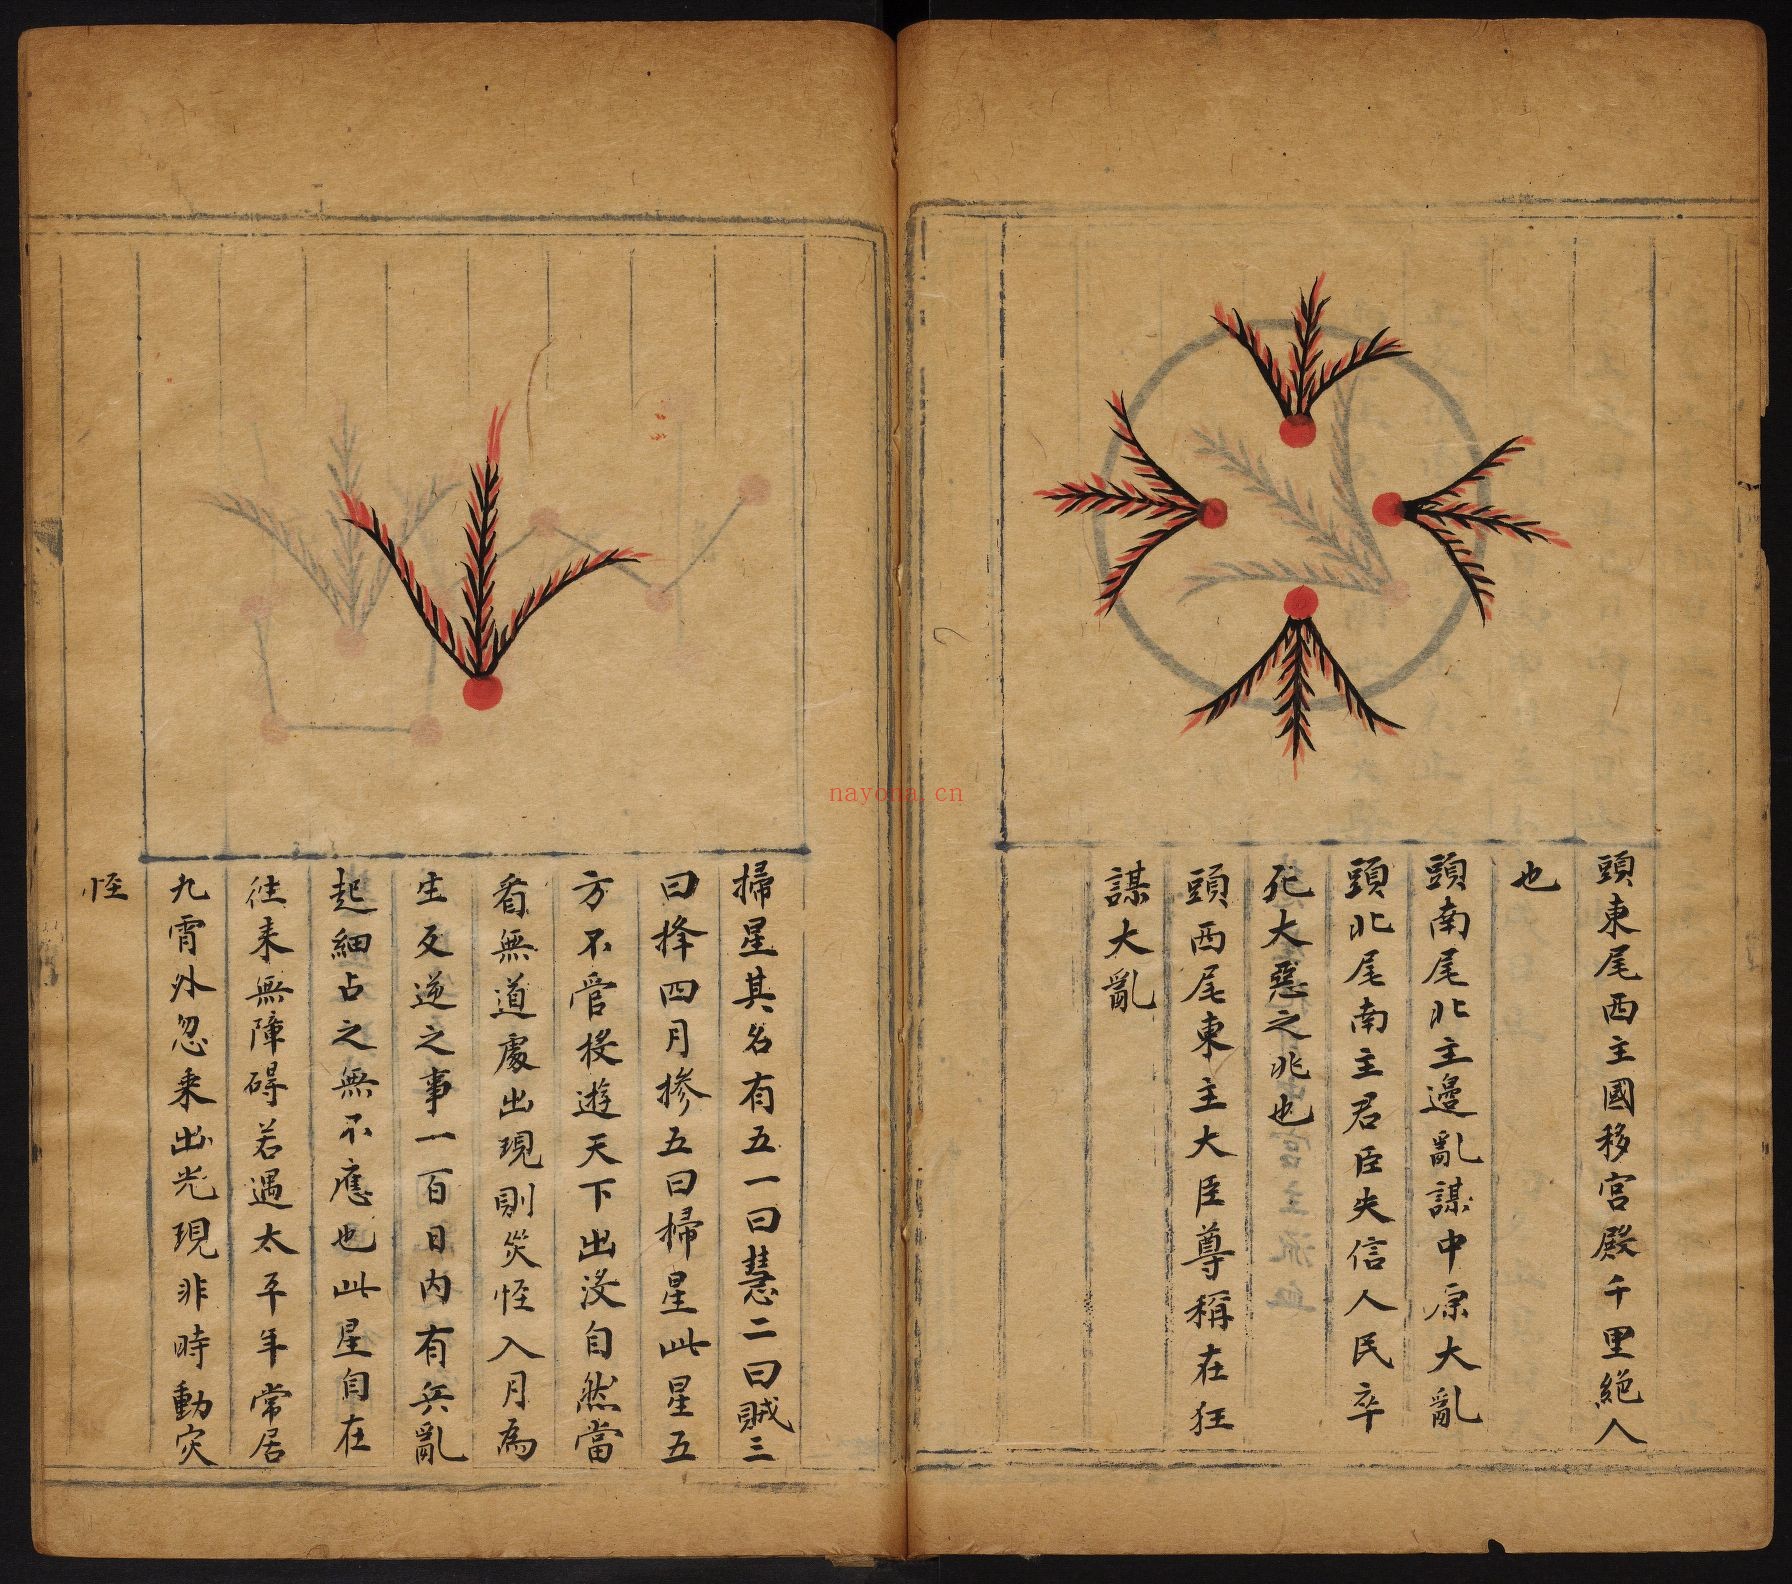 頭東尾西主國移宮殿千里絕人
也
頭南尾北主邊亂謀中原大亂
頭北尾南主君臣失信人民卒
死大惡之兆也
頭西尾東主大臣尊稱在狂
謀大亂
掃星其名有五一曰慧二曰賊三
曰撁四月摻五曰掃星此星五
方不管投遊天下出没自然當
看無道處出現則災怪入月為
生反逆之事一百日內有兵亂
起細占之無不應也此星自在
往来無障碍若遇太平年常居
九霄外忽乗出光現非時動灾
怪
nayona.cn